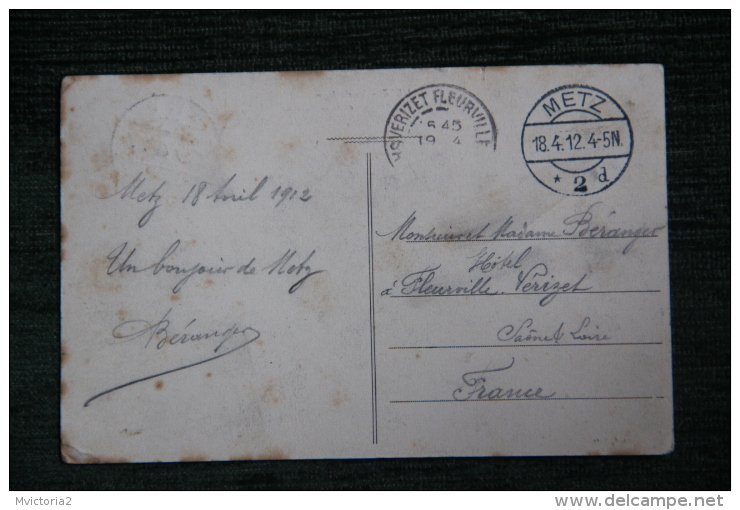 VERIZET FLEURVILLE
METZ
18.4.12.4-5N.
* 2 d
Metz 18 Avril 1912
Un bonjour de Metz
Béranger
Monsieur et Madame Béranger
Hôtel
à Fleurville. Vérizet
Saône & Loire
France
Mvictoria2
http://www.delcampe.net